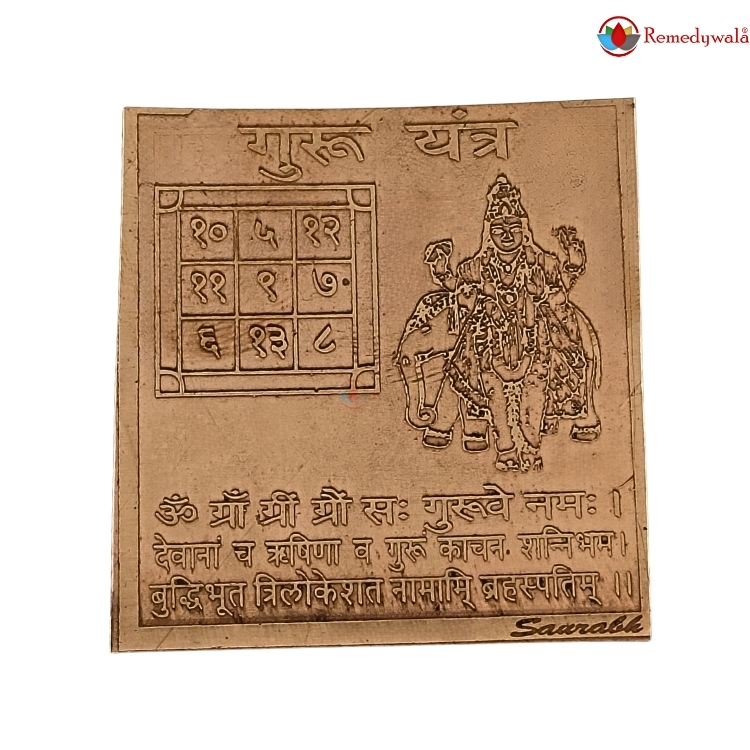 Remedywalā®
गुरू यंत्र
१० ५ १२
११ ९ ७
६ १३ ८
ॐ ग्राँ ग्रीं ग्रौं सः गुरूवे नमः।
देवानां च ऋषिणा व गुरूं काचन शन्निभम।
बुद्धिभूत त्रिलोकेशत नामामि् ब्रहस्पतिम् ।।
Saurabh